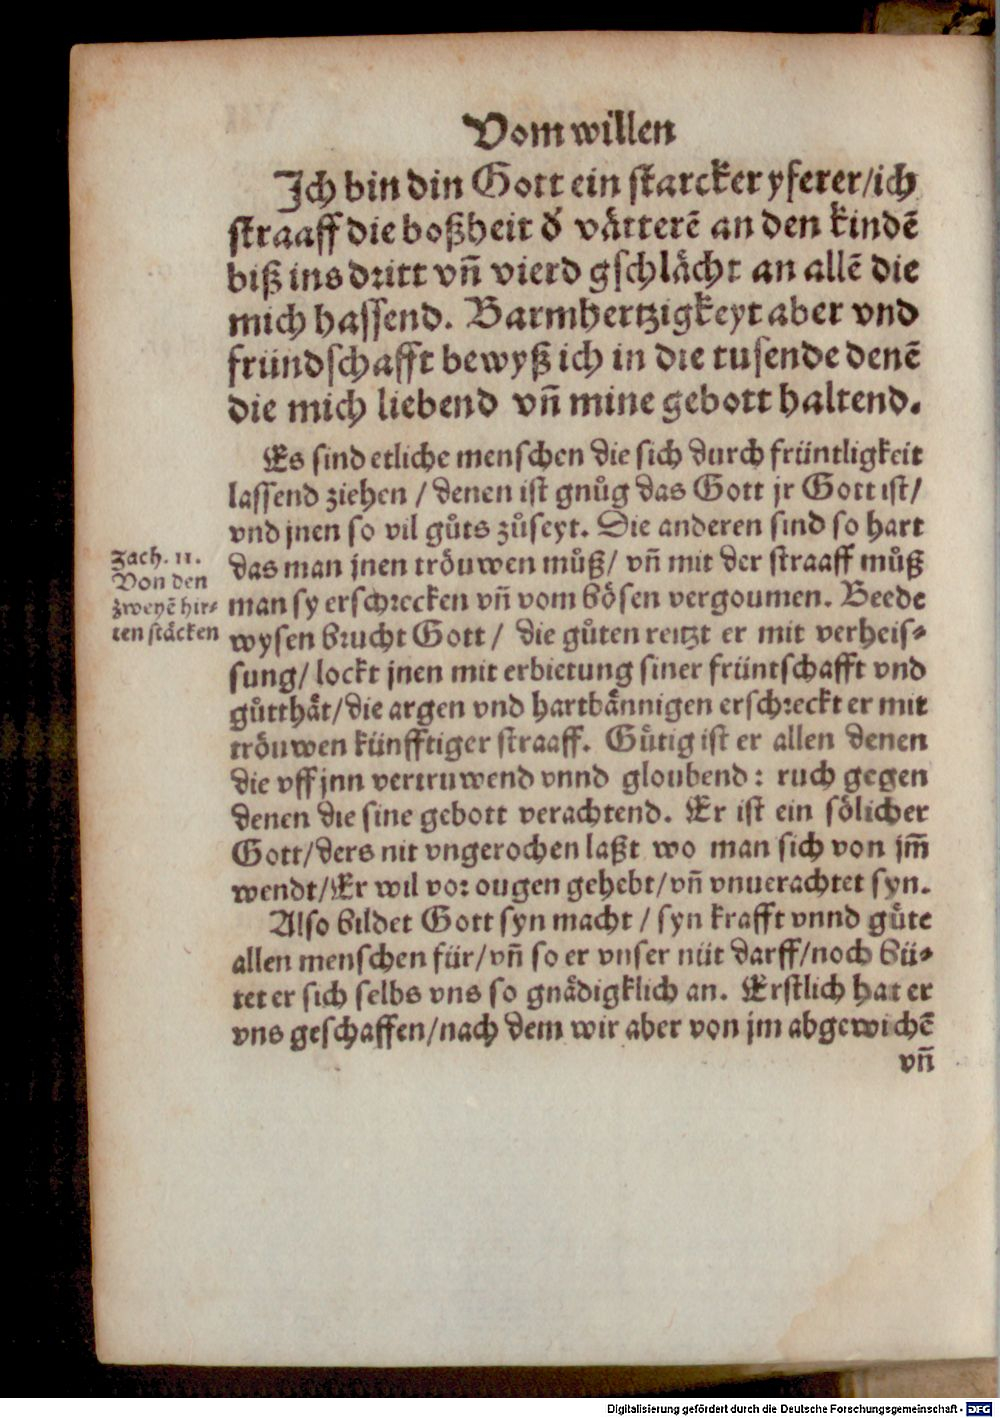 Vom willen
Ich bin din Gott ein starcker yferer/ich
straaff die boßheit d̓ vaͤtterē an den kindē
biß ins dritt vñ vierd gschlaͤcht an allē die
mich hassend. Barmhertzigkeyt aber vnd
fründschafft bewyß ich in die tusende denē
die mich liebend vñ mine gebott haltend.
Es sind etliche menschen die sich durch früntligkeit
lassend ziehen / denen ist gnůg das Gott jr Gott ist/
vnd jnen so vil gůts zůseyt. Die anderen sind so hart
das man jnen troͤuwen můß/ vñ mit der straaff můß
man sy erschrecken vñ vom boͤsen vergoumen. Beede
wysen brucht Gott / die gůten reitzt er mit verheis⸗
sung/ lockt jnen mit erbietung siner früntschafft vnd
gůtthaͤt/die argen vnd hartbaͤnnigen erschreckt er mit
troͤuwen künfftiger straaff. Guͤtig ist er allen denen
die vff jnn vertruwend vnnd gloubend: ruch gegen
denen die sine gebott verachtend. Er ist ein soͤlicher
Gott/ders nit vngerochen laßt wo man sich von jm̄
wendt/Er wil vor ougen gehebt/vñ vnuerachtet syn.
Also bildet Gott syn macht / syn krafft vnnd guͤte
allen menschen für/vñ so er vnser nüt darff/noch bü⸗
tet er sich selbs vns so gnaͤdigklich an. Erstlich hat er
vns geschaffen/nach dem wir aber von jm abgewichē
vñ
Zach. 11.
Von den
zweyē hir⸗
ten staͤcken
Digitalisierung gefördert durch die Deutsche Forschungsgemeinschaft - DFG